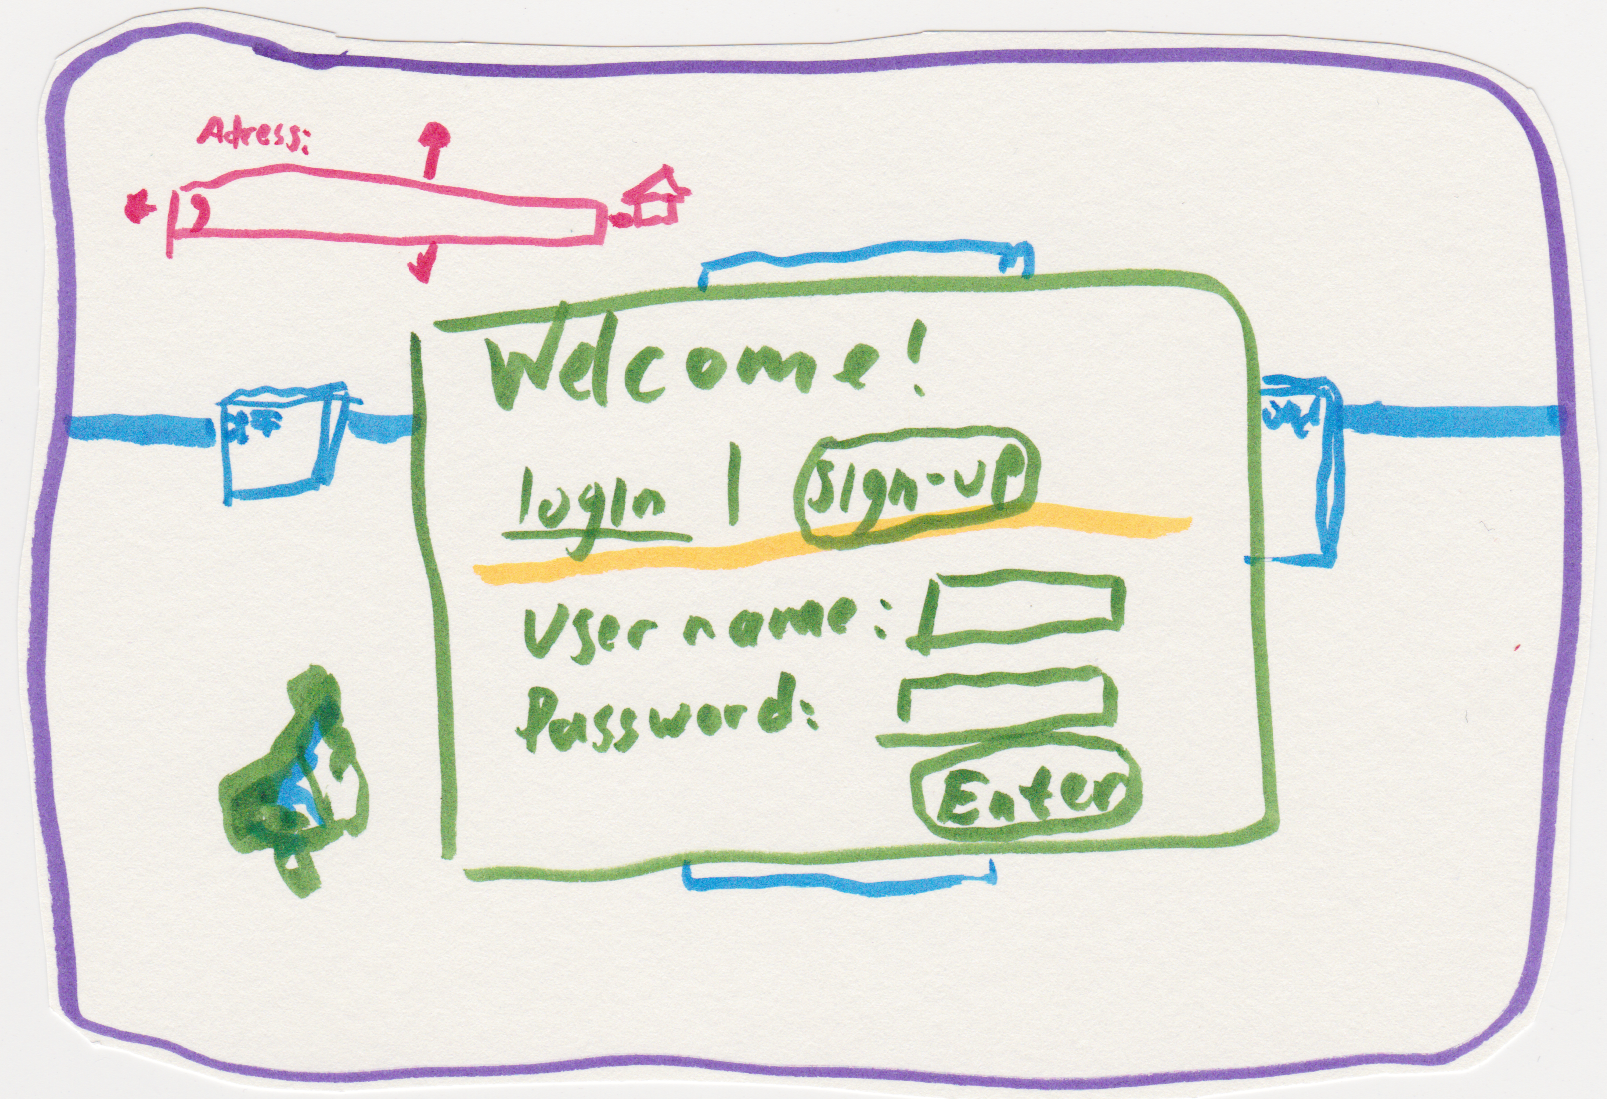 Adress:
Welcome!
login | sign-up
Username:
Password:
Enter